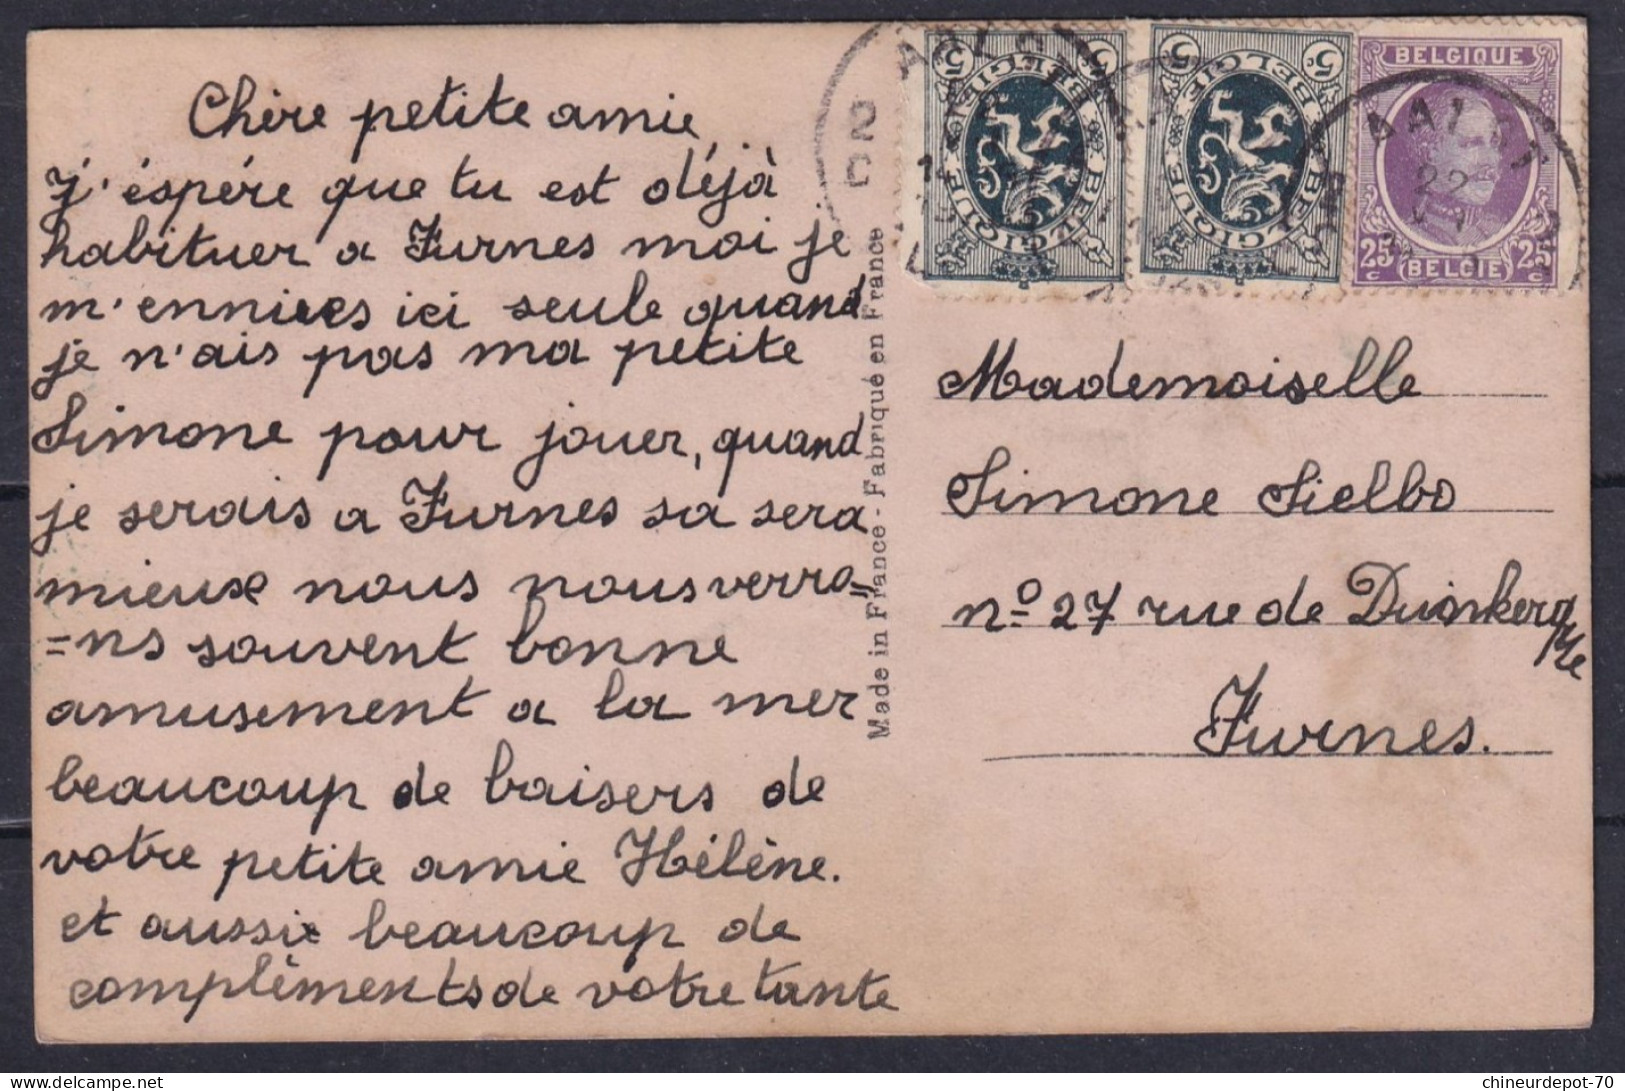 Chère petite amie
J'éspére que tu est déjà
habituer a Furnes moi je
m'ennires ici seule quand
je n'ais pas ma petite
Simone pour jouer, quand
je serais a Furnes sa sera
mieuse nous nous verro=
=ns souvent bonne
amusement a la mer
beaucoup de baisers de
votre petite amie Hélène.
et aussi beaucoup de
complèments de votre tante
Made in France - Fabriqué en France
5c 5c
BELGIQUE BELGIE
5c 5c
BELGIQUE BELGIE
BELGIQUE
25c BELGIE 25c
AALST
22
Mademoiselle
Simone Sielbo
nº 27 rue de Duinkerq
ue
Furnes.
chineurdepot-70